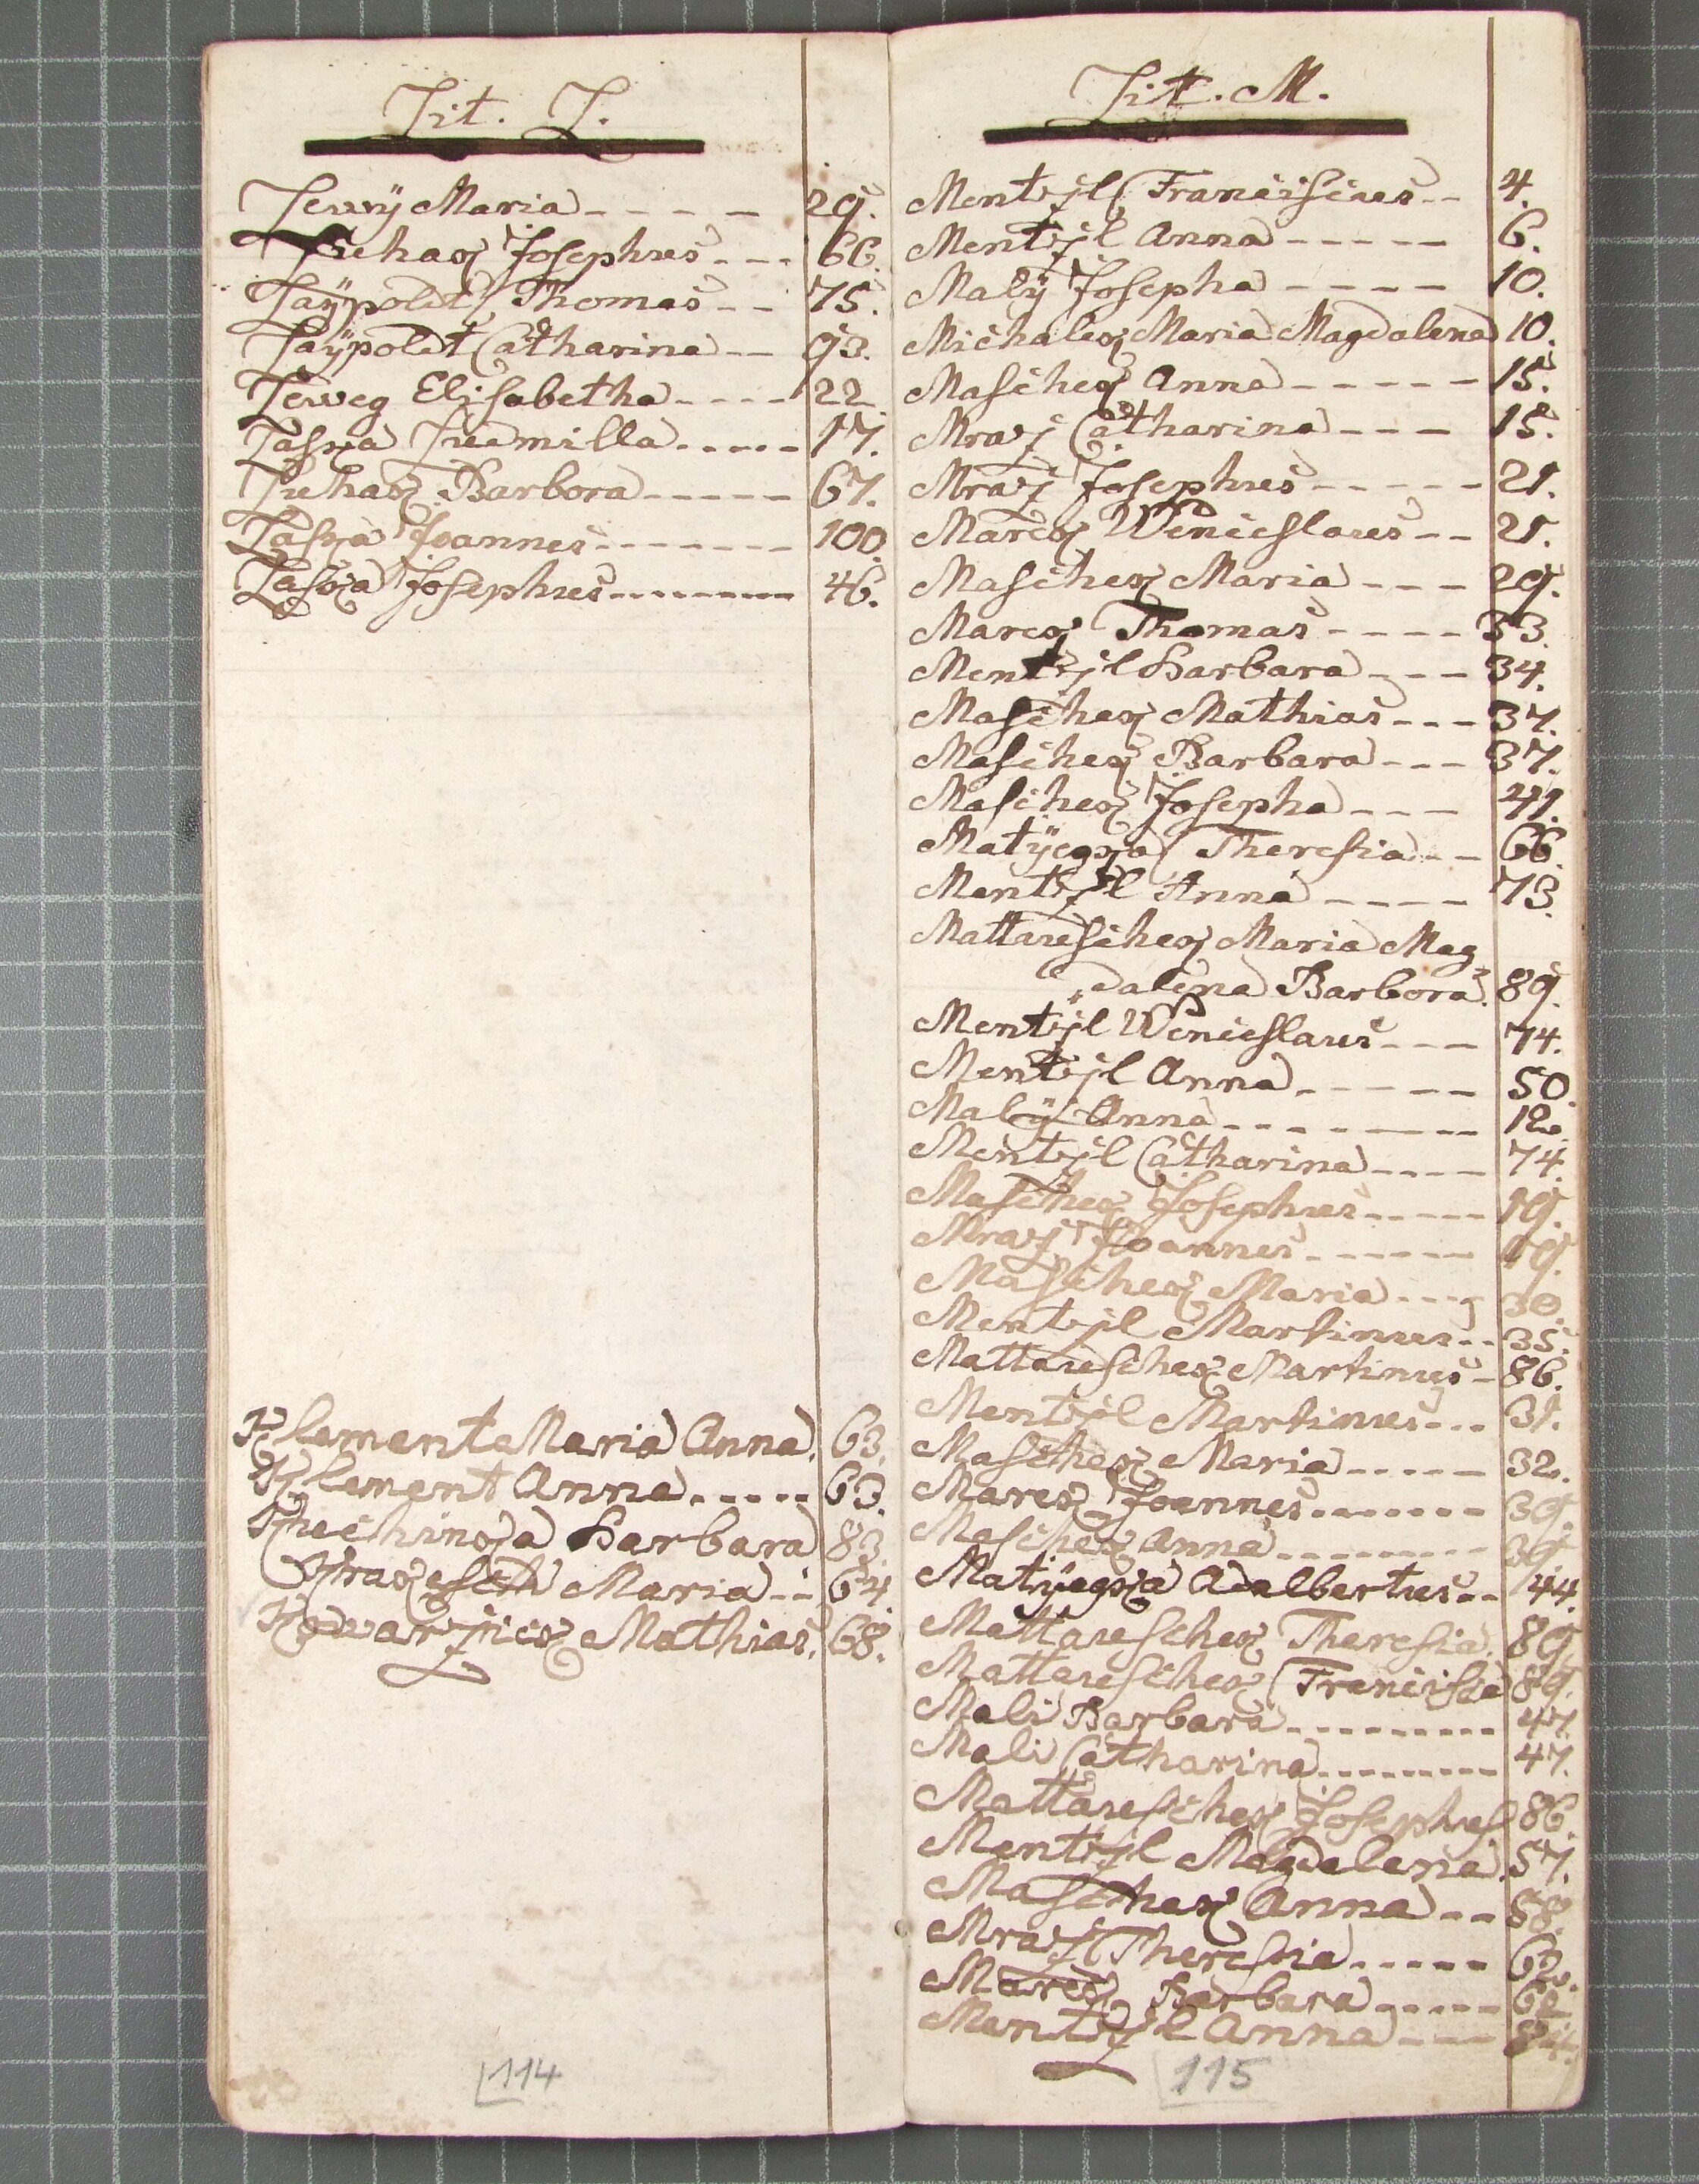 Lit. L.
Lewÿ Maria - - - - 29.
Luhak Josephus - - - 66.
Laÿpoldt Thomas - - 75.
Laÿpoldt Catharina - - 93.
Leweg Elisabetha - - - - 22.
Laska Ludmilla - - - - - 17.
Luhak Barbora - - - - - 67.
Laska Joannes - - - - - - - 100.
Laska Josephus - - - - - - - - 46.
Klement Maria Anna. 63.
Klement Anna - - - - - 63.
Kuchinka Barbara 83.
Maria - - 64.
Kowarzick Mathias. 68.
114
Lit. M.
Mentzl Franciscus - - 4.
Mentzl Anna - - - - - 6.
Malÿ Josepha - - - - 10.
Michalek Maria Magdalena 10.
Maschek Anna - - - - - 15.
Mraz Catharina - - - 15.
Mraz Josephus - - - - - 21.
Marek Wenceslaus - - 21.
Maschek Maria - - - 29.
Marek Thomas - - - - 33.
Mentzl Barbara - - - 34.
Maschek Mathias - - - 37.
Maschek Barbara - - - 37.
Maschek Josepha - - - 41.
Matÿegka Theresia - - 66.
Mentzl Anna - - - - 73.
Mattauschek Maria Mag
dalena Barbora. 89.
Mentzl Wenceslaus - - - 74.
Mentzl Anna - - - - - 50.
Malÿ Anna - - - - - - - - 12.
Mentzl Catharina - - - - 74.
Maschek Josephus - - - - - 19.
Mraz Joannes - - - - - - 19.
Maschek Maria - - - - 30.
Mentzl Martinus - - 35.
Mattauschek Martinus - 86.
Mentzl Martinus - - - 31.
Maschek Maria - - - - - 32.
Marek Joannes - - - - - - - 39.
Maschek Anna - - - - - - - - - 39.
Matÿegka Adalbertus - - 44.
Mattauschek Theresia. 89.
Mattauschek Francisca 89.
Mali Barbara - - - - - - - - - 47.
Mali Catharina - - - - - - - - 47.
Mattauschek Josephus 86.
Mentzl Magdalena. 57.
Maschek Anna - - 58.
Mraz Theresia - - - - - 63.
Marek Barbara - - - - -
Mentzl Anna - - - 84.
115